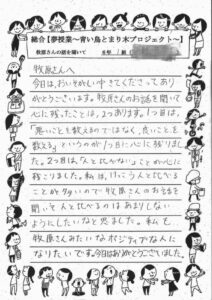 総合【夢授業～青い鳥とまり木プロジェクト～】
牧原さんの話を聞いて
牧原さんへ
今日は、おいそがしい中きてくださてあり
がとうございます。牧原さんのお話を聞いて
心に残ったことは、2つあります。1つ目は、
「悪いことを数えるのではなく、良いことを
数える」というのが1つ目に心に残りまし
た。2つ目は、「人と比べない」ことが心に
残りました。私は、けっこう人と比べる
ことが多いので牧原さんのお話を
聞いて人と比べるのはあまりしない
ようにしたいなと思ました。私も
牧原さんみたいなポジティブな人に
なりたいです。今日はありがとうございました。